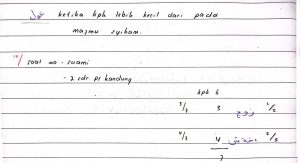 عول ketika kpk lebih kecil dari pada
majmu syiham.
soal => - suami
- 2 sdr pr kandung
kpk 6
3/7 3 زوج 1/2
4/7 4 2/3
7